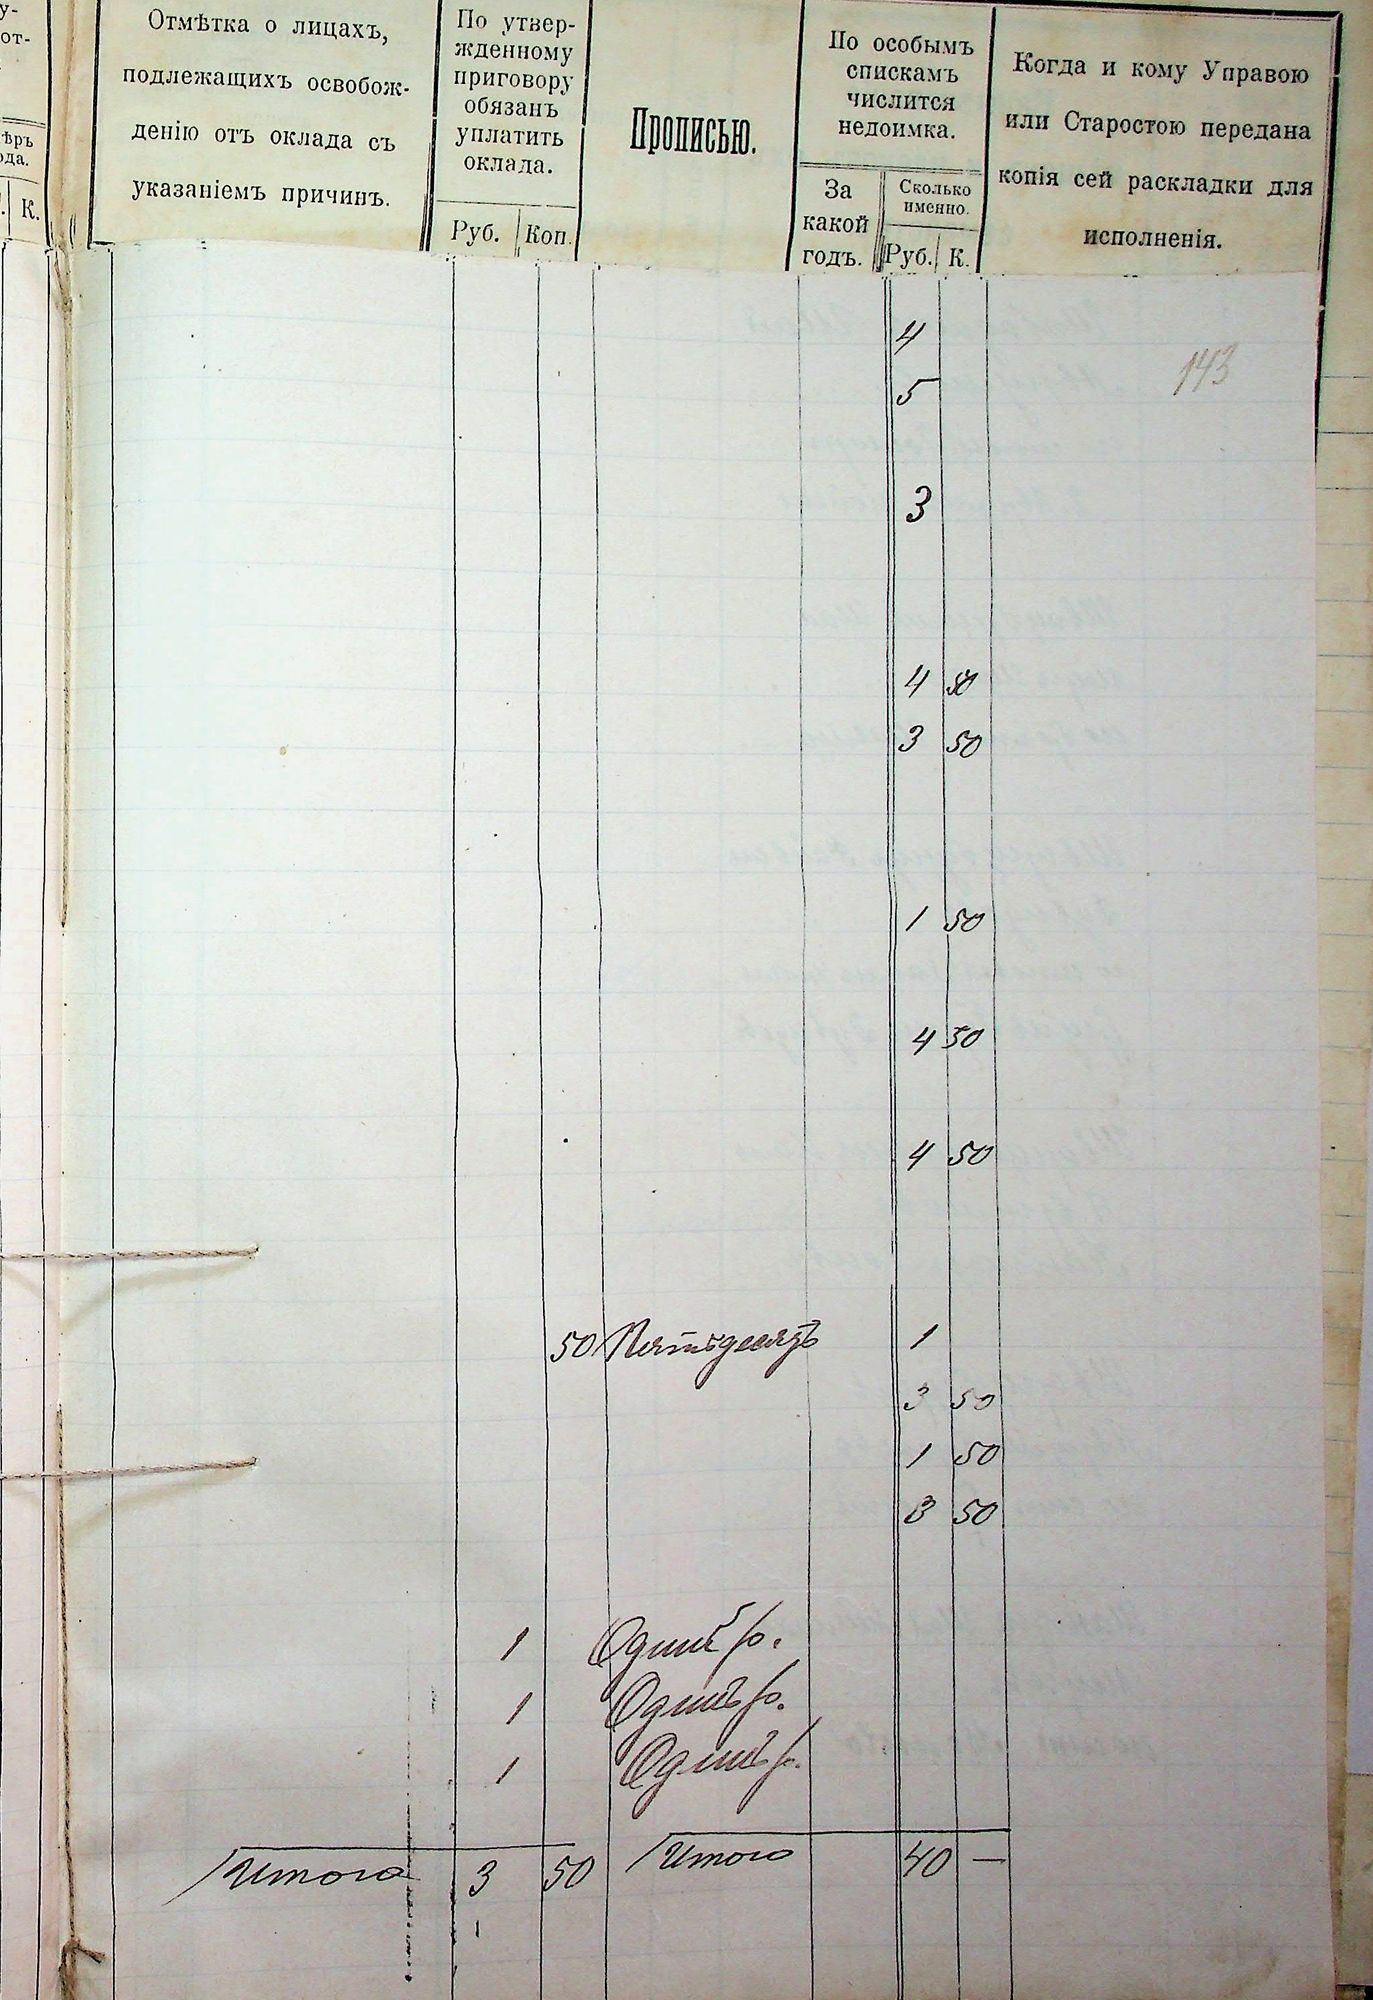 у-
от-
ѣръ
ода.
К.
Отмѣтка о лицахъ,
подлежащихъ освобож-
денію отъ оклада съ
указаніемъ причинъ.
По утвер-
жденному
приговору
обязанъ
уплатить
оклада.
Руб. Коп.
Прописью.
По особымъ
спискамъ
числится
недоимка.
За
какой
годъ.
Сколько
именно.
Руб. К.
Когда и кому Управою
или Старостою передана
копія сей раскладки для
исполненія.
143
4
5
3
4 50
3 50
1 50
4 50
4 50
50 Пятьдесятъ 1
3 50
1 50
3 50
1 Одинъ р.
1 Одинъ р.
1 Одинъ р.
Итого 3 50 Итого 40 —